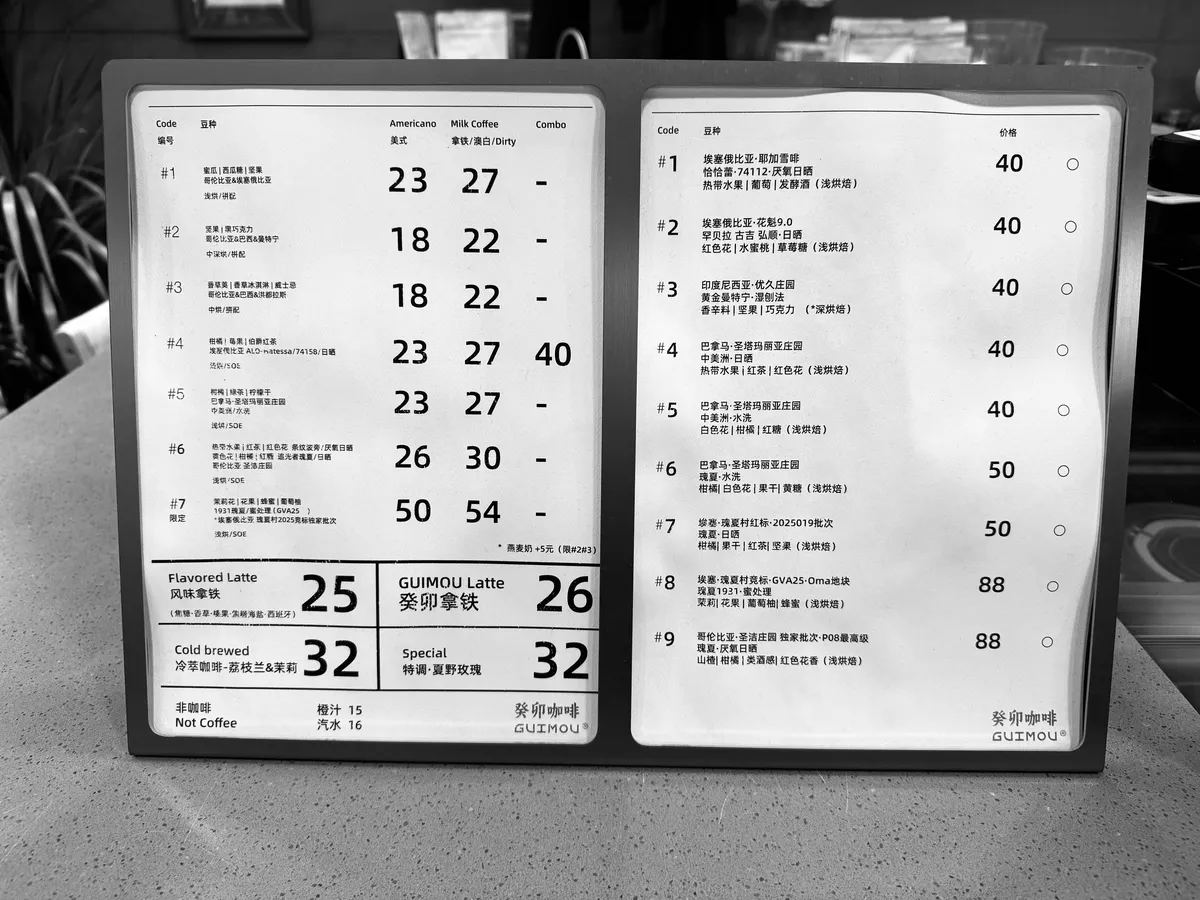 Code 豆种 Americano Milk Coffee Combo
编号 美式 拿铁/澳白/Dirty
#1 蜜瓜|西瓜糖|坚果 23 27 -
哥伦比亚&埃塞俄比亚
浅烘/拼配
#2 坚果|黑巧克力 18 22 -
哥伦比亚&巴西&曼特宁
中深烘/拼配
#3 香草荚|香草冰淇淋|威士忌 18 22 -
哥伦比亚&巴西&洪都拉斯
中烘/拼配
#4 柑橘|莓果|伯爵红茶 23 27 40
埃塞俄比亚 ALO-Hatessa/74158/日晒
浅烘/SOE
#5 柑橘|绿茶|柠檬干 23 27 -
巴拿马·圣塔玛丽亚庄园
中美洲/水洗
浅烘/SOE
#6 热带水果|红茶|红色花 条纹波旁/厌氧日晒 26 30 -
黄色花|柑橘|红糖 追光者瑰夏/日晒
哥伦比亚 圣洁庄园
浅烘/SOE
#7 茉莉花|花果|蜂蜜|葡萄柚 50 54 -
限定 1931瑰夏/蜜处理 (GVA25 )
*埃塞俄比亚 瑰夏村2025竞标独家批次
浅烘/SOE
* 燕麦奶 +5元 (限#2#3)
Flavored Latte 25
风味拿铁
(焦糖·香草·榛果·焦糖海盐·西班牙)
GUIMOU Latte 26
癸卯拿铁
Cold brewed 32
冷萃咖啡-荔枝兰&茉莉
Special 32
特调·夏野玫瑰
非咖啡 橙汁 15
Not Coffee 汽水 16
癸卯咖啡
GUIMOU®
Code 豆种 价格
#1 埃塞俄比亚·耶加雪啡 40 ○
恰恰蕾·74112·厌氧日晒
热带水果|葡萄|发酵酒 (浅烘焙)
#2 埃塞俄比亚·花魁9.0 40 ○
罕贝拉 古吉 弘顺·日晒
红色花|水蜜桃|草莓糖 (浅烘焙)
#3 印度尼西亚·优久庄园 40 ○
黄金曼特宁·湿刨法
香辛料|坚果|巧克力 (*深烘焙)
#4 巴拿马·圣塔玛丽亚庄园 40 ○
中美洲·日晒
热带水果|红茶|红色花 (浅烘焙)
#5 巴拿马·圣塔玛丽亚庄园 40 ○
中美洲·水洗
白色花|柑橘|红糖 (浅烘焙)
#6 巴拿马·圣塔玛丽亚庄园 50 ○
瑰夏·水洗
柑橘|白色花|果干|黄糖 (浅烘焙)
#7 埃塞·瑰夏村红标·2025019批次 50 ○
瑰夏·日晒
柑橘|果干|红茶|坚果 (浅烘焙)
#8 埃塞·瑰夏村竞标·GVA25·Oma地块 88 ○
瑰夏1931·蜜处理
茉莉|花果|葡萄柚|蜂蜜 (浅烘焙)
#9 哥伦比亚·圣洁庄园 独家批次·P08最高级 88 ○
瑰夏·厌氧日晒
山楂|柑橘|类酒感|红色花香 (浅烘焙)
癸卯咖啡
GUIMOU®